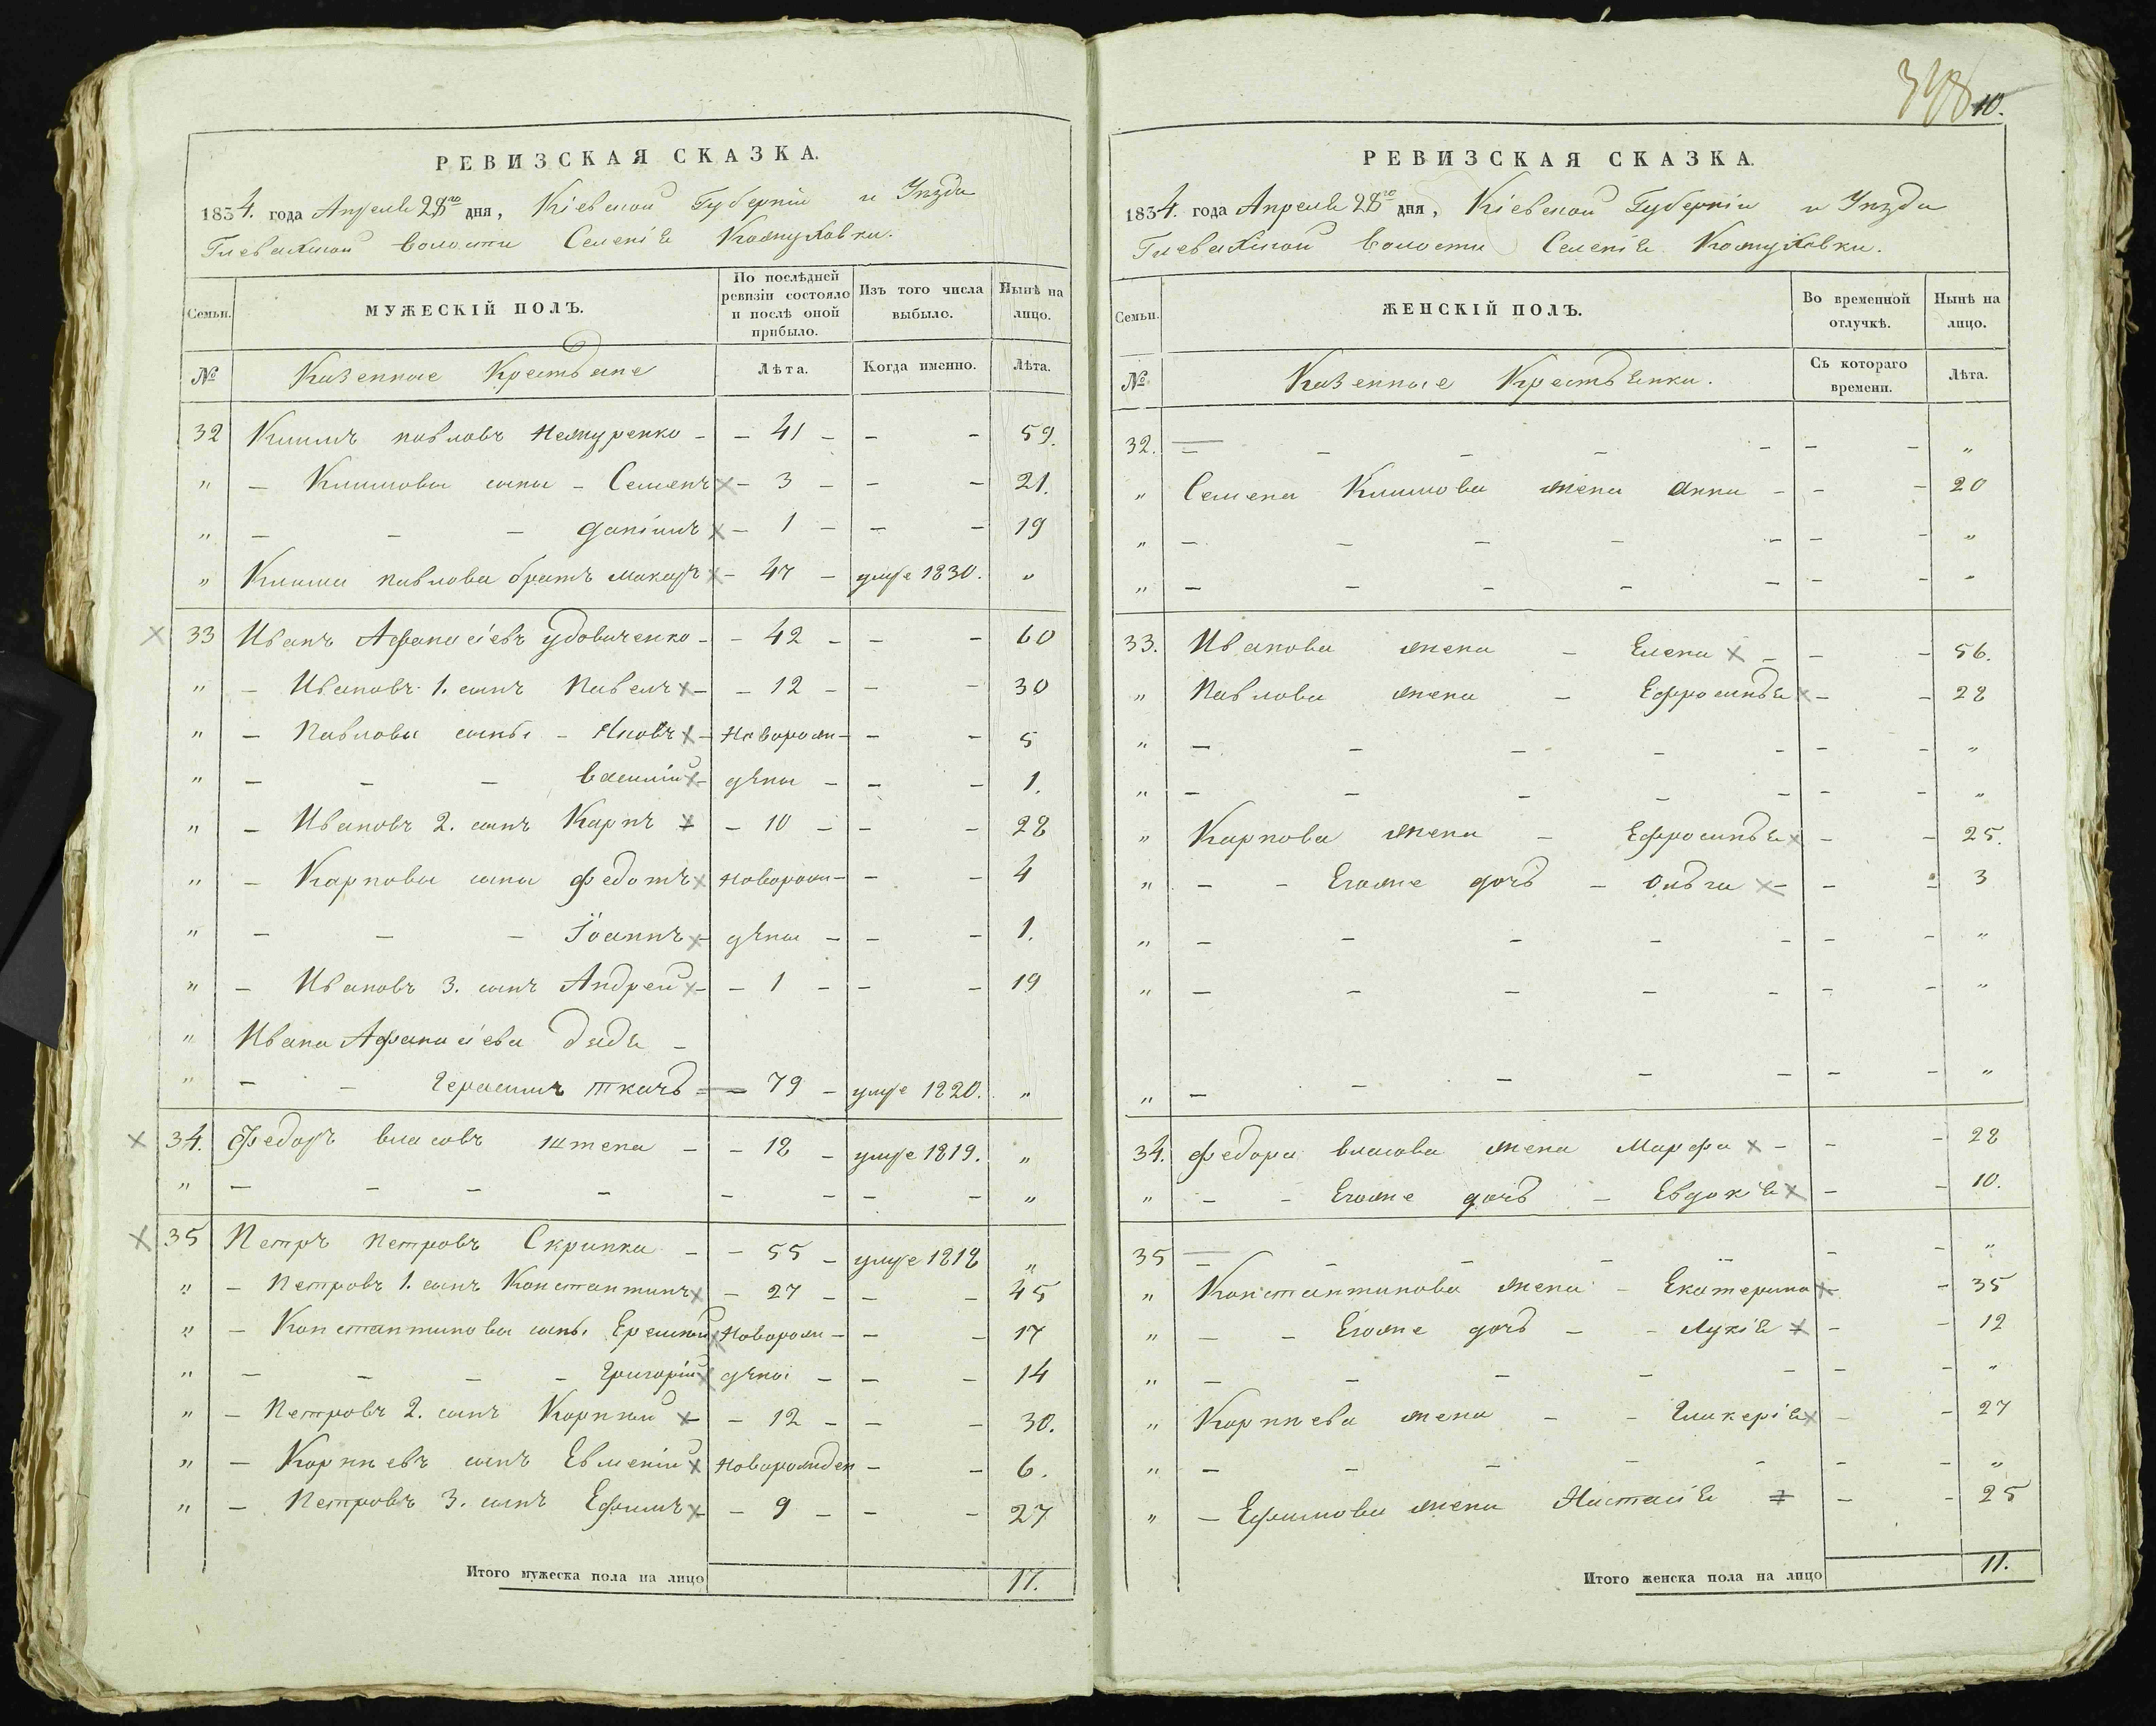 РЕВИЗСКАЯ СКАЗКА.
1834. года Апреля 28го дня, Кіевской Губерніи и Уѣзда
Глевахской волости Селенія Кожуховки.
Семьи.
МУЖЕСКІЙ ПОЛЪ.
По послѣдней ревизіи состояло и послѣ оной прибыло.
Изъ того числа выбыло.
Нынѣ на лицо.
№
Казенные Крестьяне
Лѣта.
Когда именно.
Лѣта.
32 Климъ павловъ - 41 - - - 59.
" - Климовы сыны - Семенъ - 3 - - - 21.
" - - - Даніилъ - 1 - - - 19
" Клима павлова братъ макаръ - 47 - умре 1830. "
33 Иванъ Афанасіевъ Удовиченко - - 42 - - - 60
" - Ивановъ 1. сынъ Павелъ - - 12 - - - 30
" - Павловы сыны - Яковъ - Новорож- - - 5
" - - - василій - дѣны - - - 1.
" - Ивановъ 2. сынъ Карпъ - 10 - - - 28
" - Карповы сыны федотъ новорож- - - 4
" - - - Іоаннъ - дѣны - - - 1.
" - Ивановъ 3. сынъ Андрей - - 1 - - - 19
" Ивана Афанасіева дядя -
" - - Герасимъ ткачь - 79 - умре 1820. "
34. Федоръ власовъ - - 18 - умре 1819. "
" - - - - - - - - "
35 Петръ петровъ Скрипка - - 55 - умре 1818 "
" - петровъ 1. сынъ Константинъ - 27 - - - 45
" - Константиновы сыны Еремѣй Новорож- - - 17
" - - - - Григорій дѣны - - - 14
" - Петровъ 2. сынъ Корнѣй - 12 - - - 30.
" - Корнѣевъ сынъ Евменій Новорожден - - 6.
" - Петровъ 3. сынъ Ефимъ - 9 - - - 27
Итого мужеска пола на лицо 17.
10.
РЕВИЗСКАЯ СКАЗКА.
1834. года Апреля 28го дня, Кіевской Губерніи и Уѣзда
Глевахской волости Селенія Кожуховки.
Семьи.
ЖЕНСКІЙ ПОЛЪ.
Во временной отлучкѣ.
Нынѣ на лицо.
№
Казенные Крестьянки.
Съ котораго времени.
Лѣта.
32. - - - - - - - "
" Семена Климова жена Анна - - - 20
" - - - - - - - "
" - - - - - - - "
33. Иванова жена - Елена - - - 56.
" Павлова жена - Ефросинья - - 28
" - - - - - - - "
" - - - - - - - "
" Карпова жена - Ефросинья - - 25.
" - - Егоже дочь - Ольга - - - 3
" - - - - - - - "
" - - - - - - - "
" - - - - - - - "
34. федора власова жена Марфа - - - 28
" - - Егоже дочь - Евдокія - - 10.
35 - - - - - - - "
" Константинова жена - Екатерина - - 35
" - - Егоже дочь - - Лукія - - 12
" - - - - - - - "
" Корнѣева жена - - Гликерія - - 27
" - - - - - - - "
" - Ефимова жена Настасія - - 25
Итого женска пола на лицо 11.